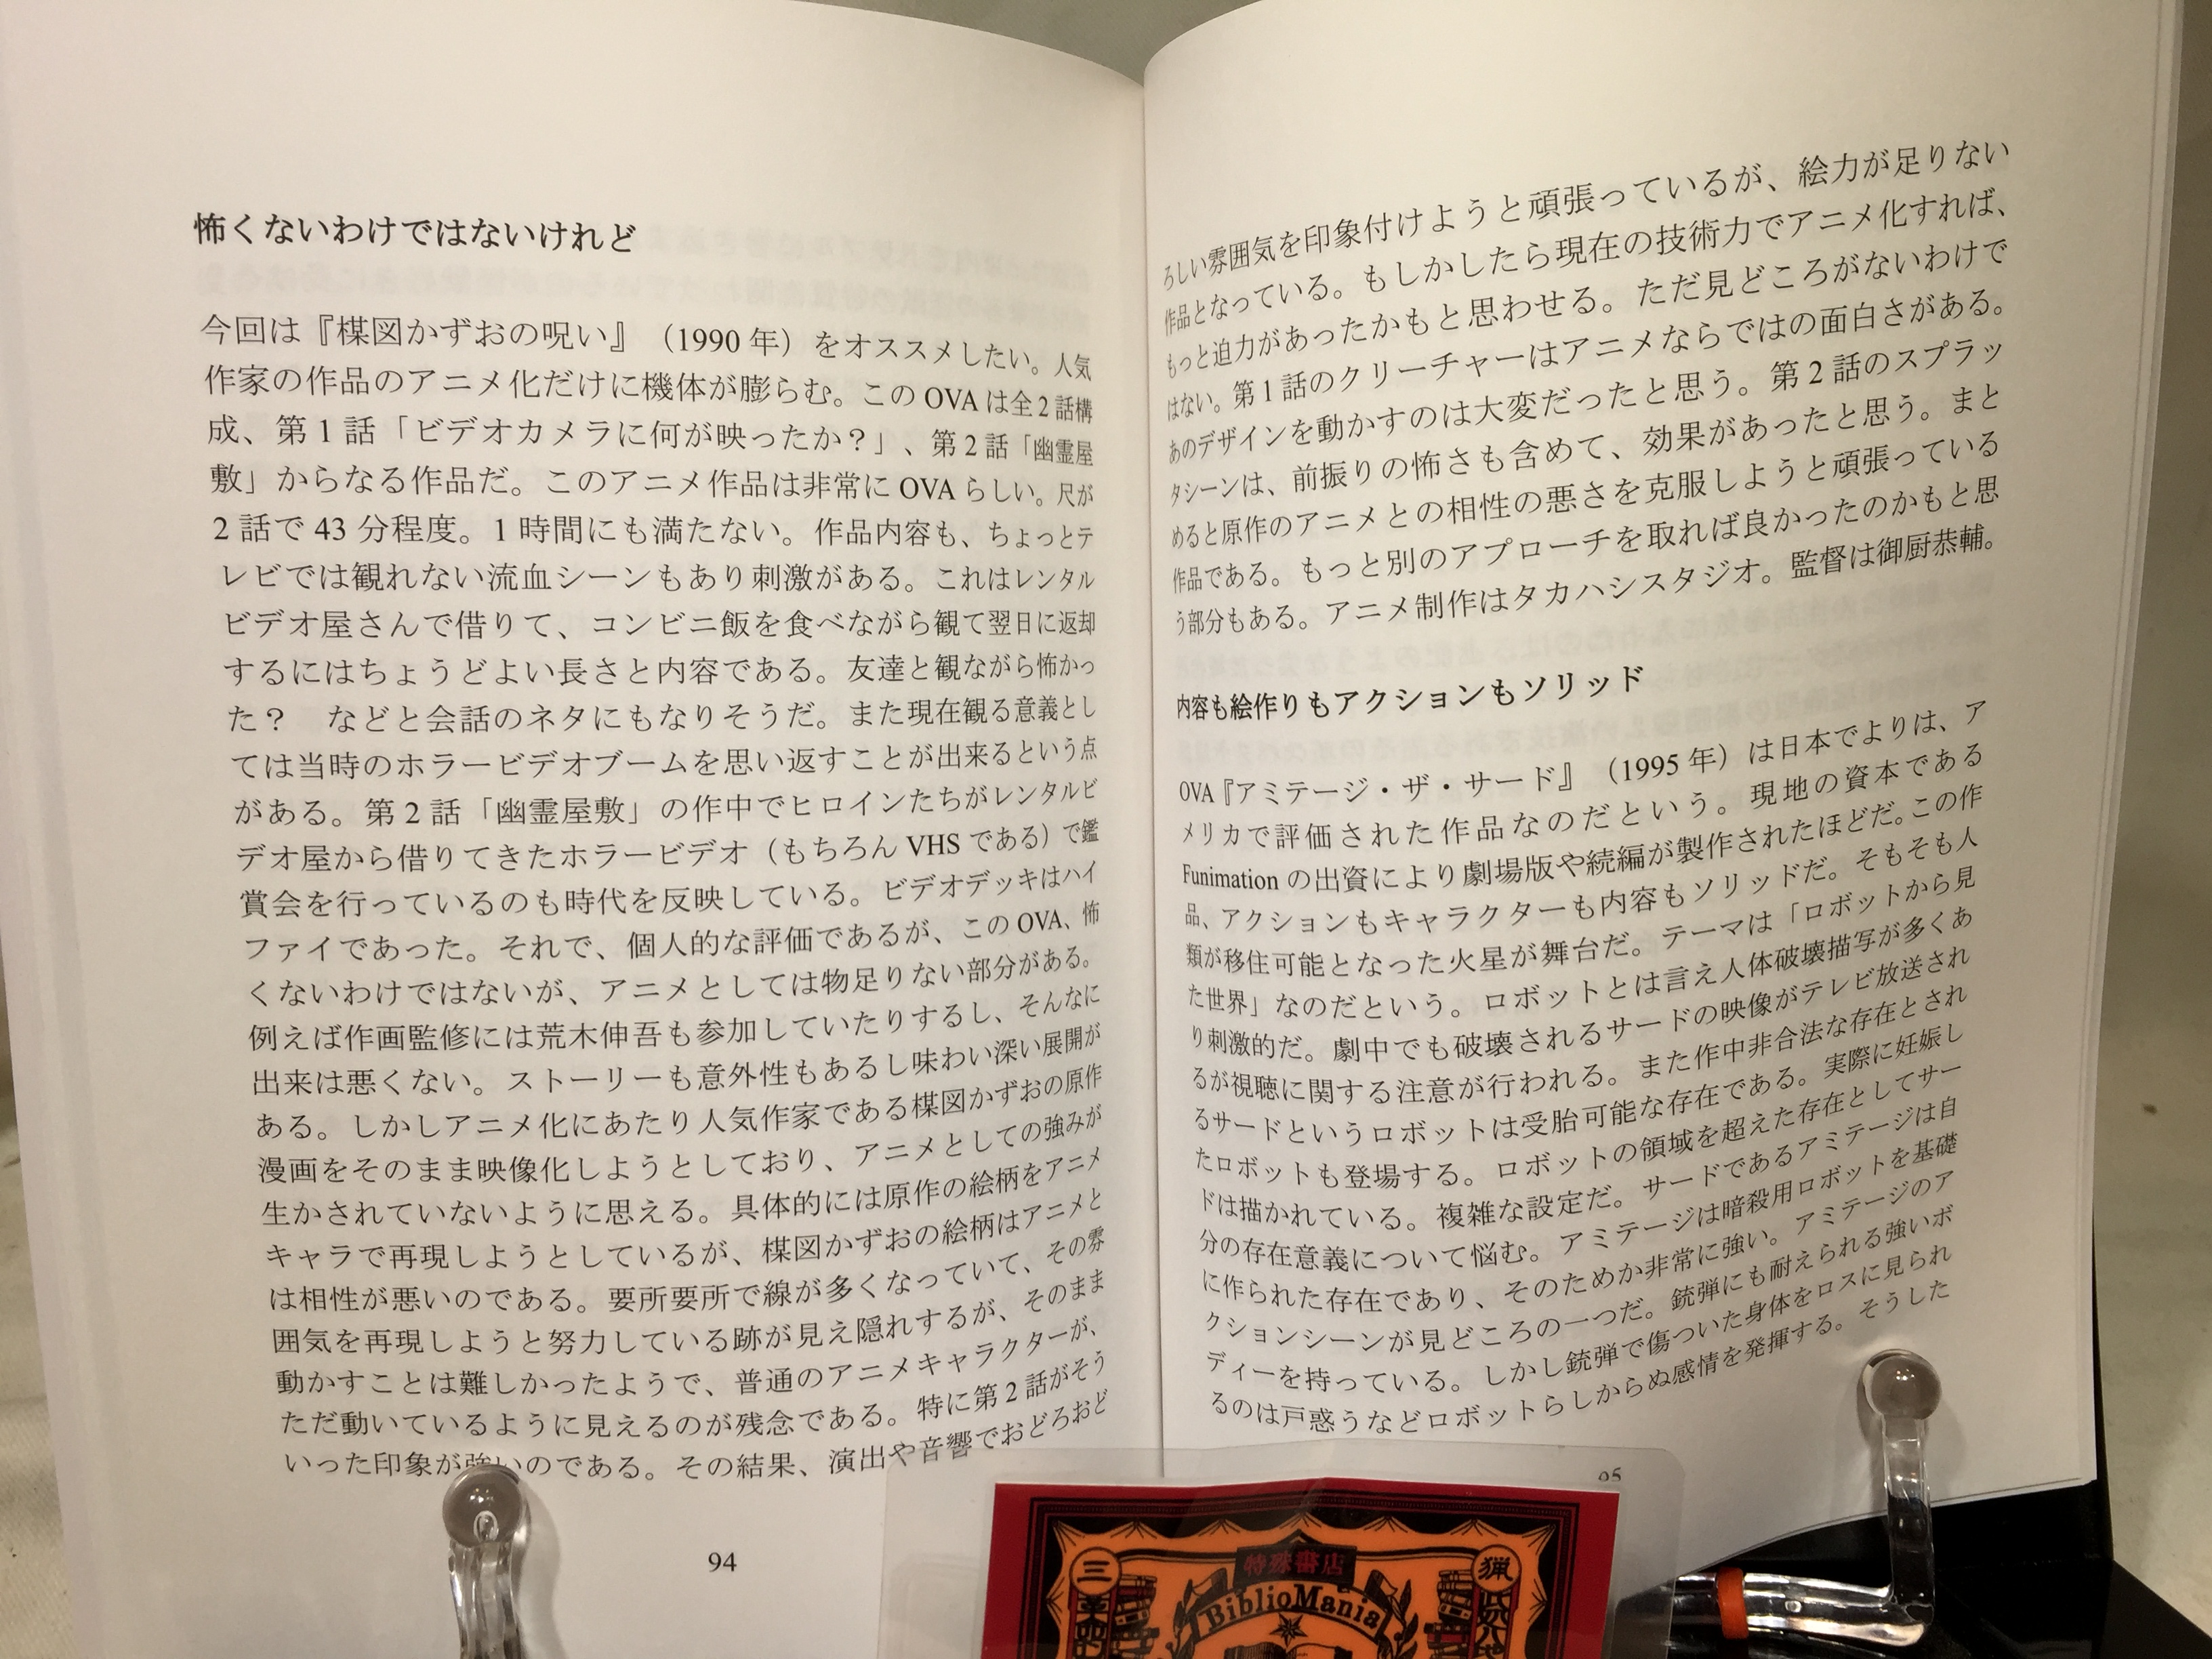 怖くないわけではないけれど
今回は『楳図かずおの呪い』（1990 年）をオススメしたい。人気
作家の作品のアニメ化だけに機体が膨らむ。この OVA は全 2 話構
成、第 1 話「ビデオカメラに何が映ったか？」、第 2 話「幽霊屋
敷」からなる作品だ。このアニメ作品は非常に OVA らしい。尺が
2 話で 43 分程度。1 時間にも満たない。作品内容も、ちょっとテ
レビでは観れない流血シーンもあり刺激がある。これはレンタル
ビデオ屋さんで借りて、コンビニ飯を食べながら観て翌日に返却
するにはちょうどよい長さと内容である。友達と観ながら怖かっ
た？　などと会話のネタにもなりそうだ。また現在観る意義とし
ては当時のホラービデオブームを思い返すことが出来るという点
がある。第 2 話「幽霊屋敷」の作中でヒロインたちがレンタルビ
デオ屋から借りてきたホラービデオ（もちろん VHS である）で鑑
賞会を行っているのも時代を反映している。ビデオデッキはハイ
ファイであった。それで、個人的な評価であるが、この OVA、怖
くないわけではないが、アニメとしては物足りない部分がある。
例えば作画監修には荒木伸吾も参加していたりするし、そんなに
出来は悪くない。ストーリーも意外性もあるし味わい深い展開が
ある。しかしアニメ化にあたり人気作家である楳図かずおの原作
漫画をそのまま映像化しようとしており、アニメとしての強みが
生かされていないように思える。具体的には原作の絵柄をアニメ
キャラで再現しようとしているが、楳図かずおの絵柄はアニメと
は相性が悪いのである。要所要所で線が多くなっていて、その雰
囲気を再現しようと努力している跡が見え隠れするが、そのまま
動かすことは難しかったようで、普通のアニメキャラクターが、
ただ動いているように見えるのが残念である。特に第 2 話がそう
いった印象が強いのである。その結果、演出や音響でおどろおど
94
ろしい雰囲気を印象付けようと頑張っているが、絵力が足りない
作品となっている。もしかしたら現在の技術力でアニメ化すれば、
もっと迫力があったかもと思わせる。ただ見どころがないわけで
はない。第 1 話のクリーチャーはアニメならではの面白さがある。
あのデザインを動かすのは大変だったと思う。第 2 話のスプラッ
タシーンは、前振りの怖さも含めて、効果があったと思う。まと
めると原作のアニメとの相性の悪さを克服しようと頑張っている
作品である。もっと別のアプローチを取れば良かったのかもと思
う部分もある。アニメ制作はタカハシスタジオ。監督は御厨恭輔。
内容も絵作りもアクションもソリッド
OVA『アミテージ・ザ・サード』（1995 年）は日本でよりは、ア
メリカで評価された作品なのだという。現地の資本である
Funimation の出資により劇場版や続編が製作されたほどだ。この作
品、アクションもキャラクターも内容もソリッドだ。そもそも人
類が移住可能となった火星が舞台だ。テーマは「ロボットから見
た世界」なのだという。ロボットとは言え人体破壊描写が多くあ
り刺激的だ。劇中でも破壊されるサードの映像がテレビ放送され
るが視聴に関する注意が行われる。また作中非合法な存在とされ
るサードというロボットは受胎可能な存在である。実際に妊娠し
たロボットも登場する。ロボットの領域を超えた存在としてサー
ドは描かれている。複雑な設定だ。サードであるアミテージは自
分の存在意義について悩む。アミテージは暗殺用ロボットを基礎
に作られた存在であり、そのためか非常に強い。アミテージのア
クションシーンが見どころの一つだ。銃弾にも耐えられる強いボ
ディーを持っている。しかし銃弾で傷ついた身体をロスに見られ
るのは戸惑うなどロボットらしからぬ感情を発揮する。そうした
95
特殊書店
BiblioMania
三
猟